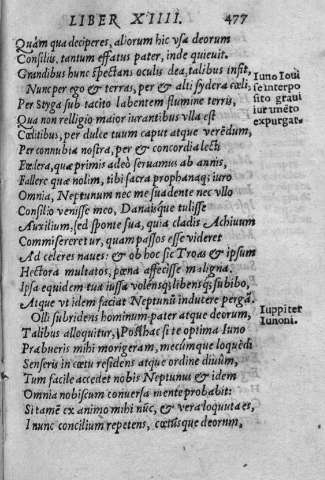 LIBER XIIII. 477
Quàm qua deciperes, aliorum hic vsa deorum
Consiliis, tantum effatus pater, inde quieuit.
Grandibus hunc spectans oculis dea, talibus infit,
Nunc per ego & terras, per & alti sydera cœli,
Per Styga sub tacito labentem flumine terris,
Qua non relligio maior iurantibus vlla est
Cœlitibus, per dulce tuum caput atque verēdum,
Per connubia nostra, per & concordia lecti
Fœdera, quæ primis adeò seruamus ab annis,
Fallere quæ nolim, tibi sacra prophanaq; iuro
Omnia, Neptunum nec me suadente nec vllo
Consilio venisse meo, Danaisque tulisse
Auxilium, sed sponte sua, quia cladis Achiuum
Commisereretur, quam passos esse videret
Ad celeres naues: & ob hoc sic Troas & ipsum
Hectora multatos, pœna affecisse maligna.
Ipsa equidem tua iussa volensq; libensq; subibo,
Atque vt idem faciat Neptunū indutere pergā.
Olli subridens hominum pater atque deorum,
Talibus alloquitur, Posthac si te optima Iuno
Præbueris mihi morigeram, mecúmque loquēdi
Senseris in cœtu residens atque ordine diuûm,
Tum facile accedet nobis Neptunus & idem
Omnia nobiscum conuersa mente probabit:
Si tamē ex animo mihi nūc, & vera loquuta es,
I nunc concilium repetens, cœtúsque deorum,
Iuno Ioui
se interpo
sito graui
iureiurādo
expurgat.
Iuppiter
Iunoni.